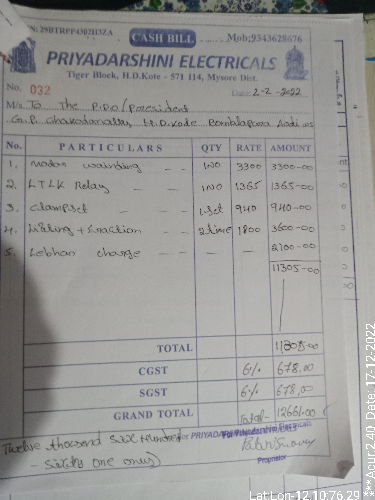 CASH BILL Mob:9343628676
PRIYADARSHINI ELECTRICALS
Tiger Block, H.D.Kote - 571 114, Mysore Dist.
No. 032 Date: 2-2-2022
M/s To The P.D.O/President
H.D.Kote
No. PARTICULARS QTY RATE AMOUNT
1. Motor wainding - - 1NO 3300 3300-00
2. LTLK Relay - 1NO 1365 1365-00
3. clampset - - 1-Set 940 940-00
4. Lifting + Eraction - - 2time 1800 3600-00
5. Lebhar charge - - - 2100-00
11305-00
TOTAL 11305-00
CGST 6% 678.00
SGST 6% 678,00
GRAND TOTAL Total- 12661.00
Twelve thousand six Hundred
- sixty one only)
for PRIYADARSHINI
Proprietor
Lat Lon-12.10:76.29***Acur:2.40 Date: 17-12-2022